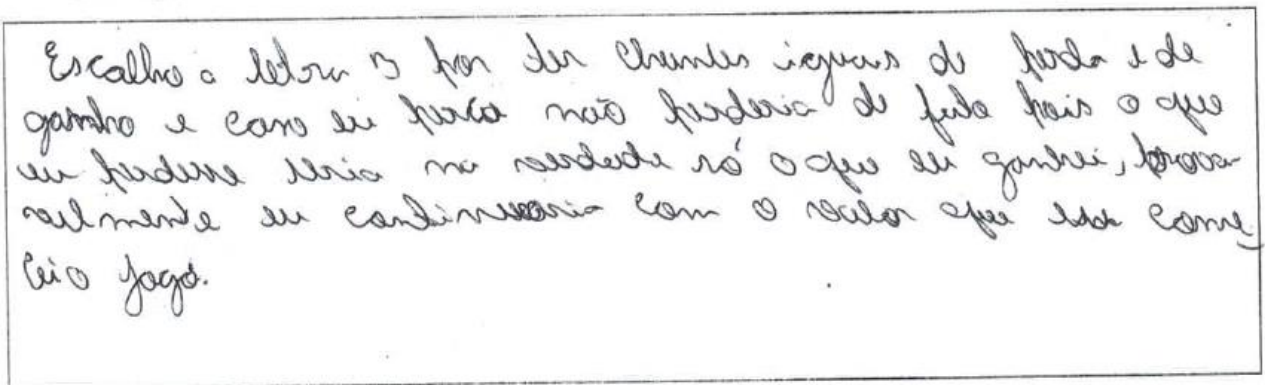 Escolho a letra B por ter chances iguais de perda e de
ganho e caso eu perca não perderia de fato pois o que
eu perdesse seria na verdade só o que eu ganhei, prova-
velmente eu continuaria com o valor que come
cei o jogo.